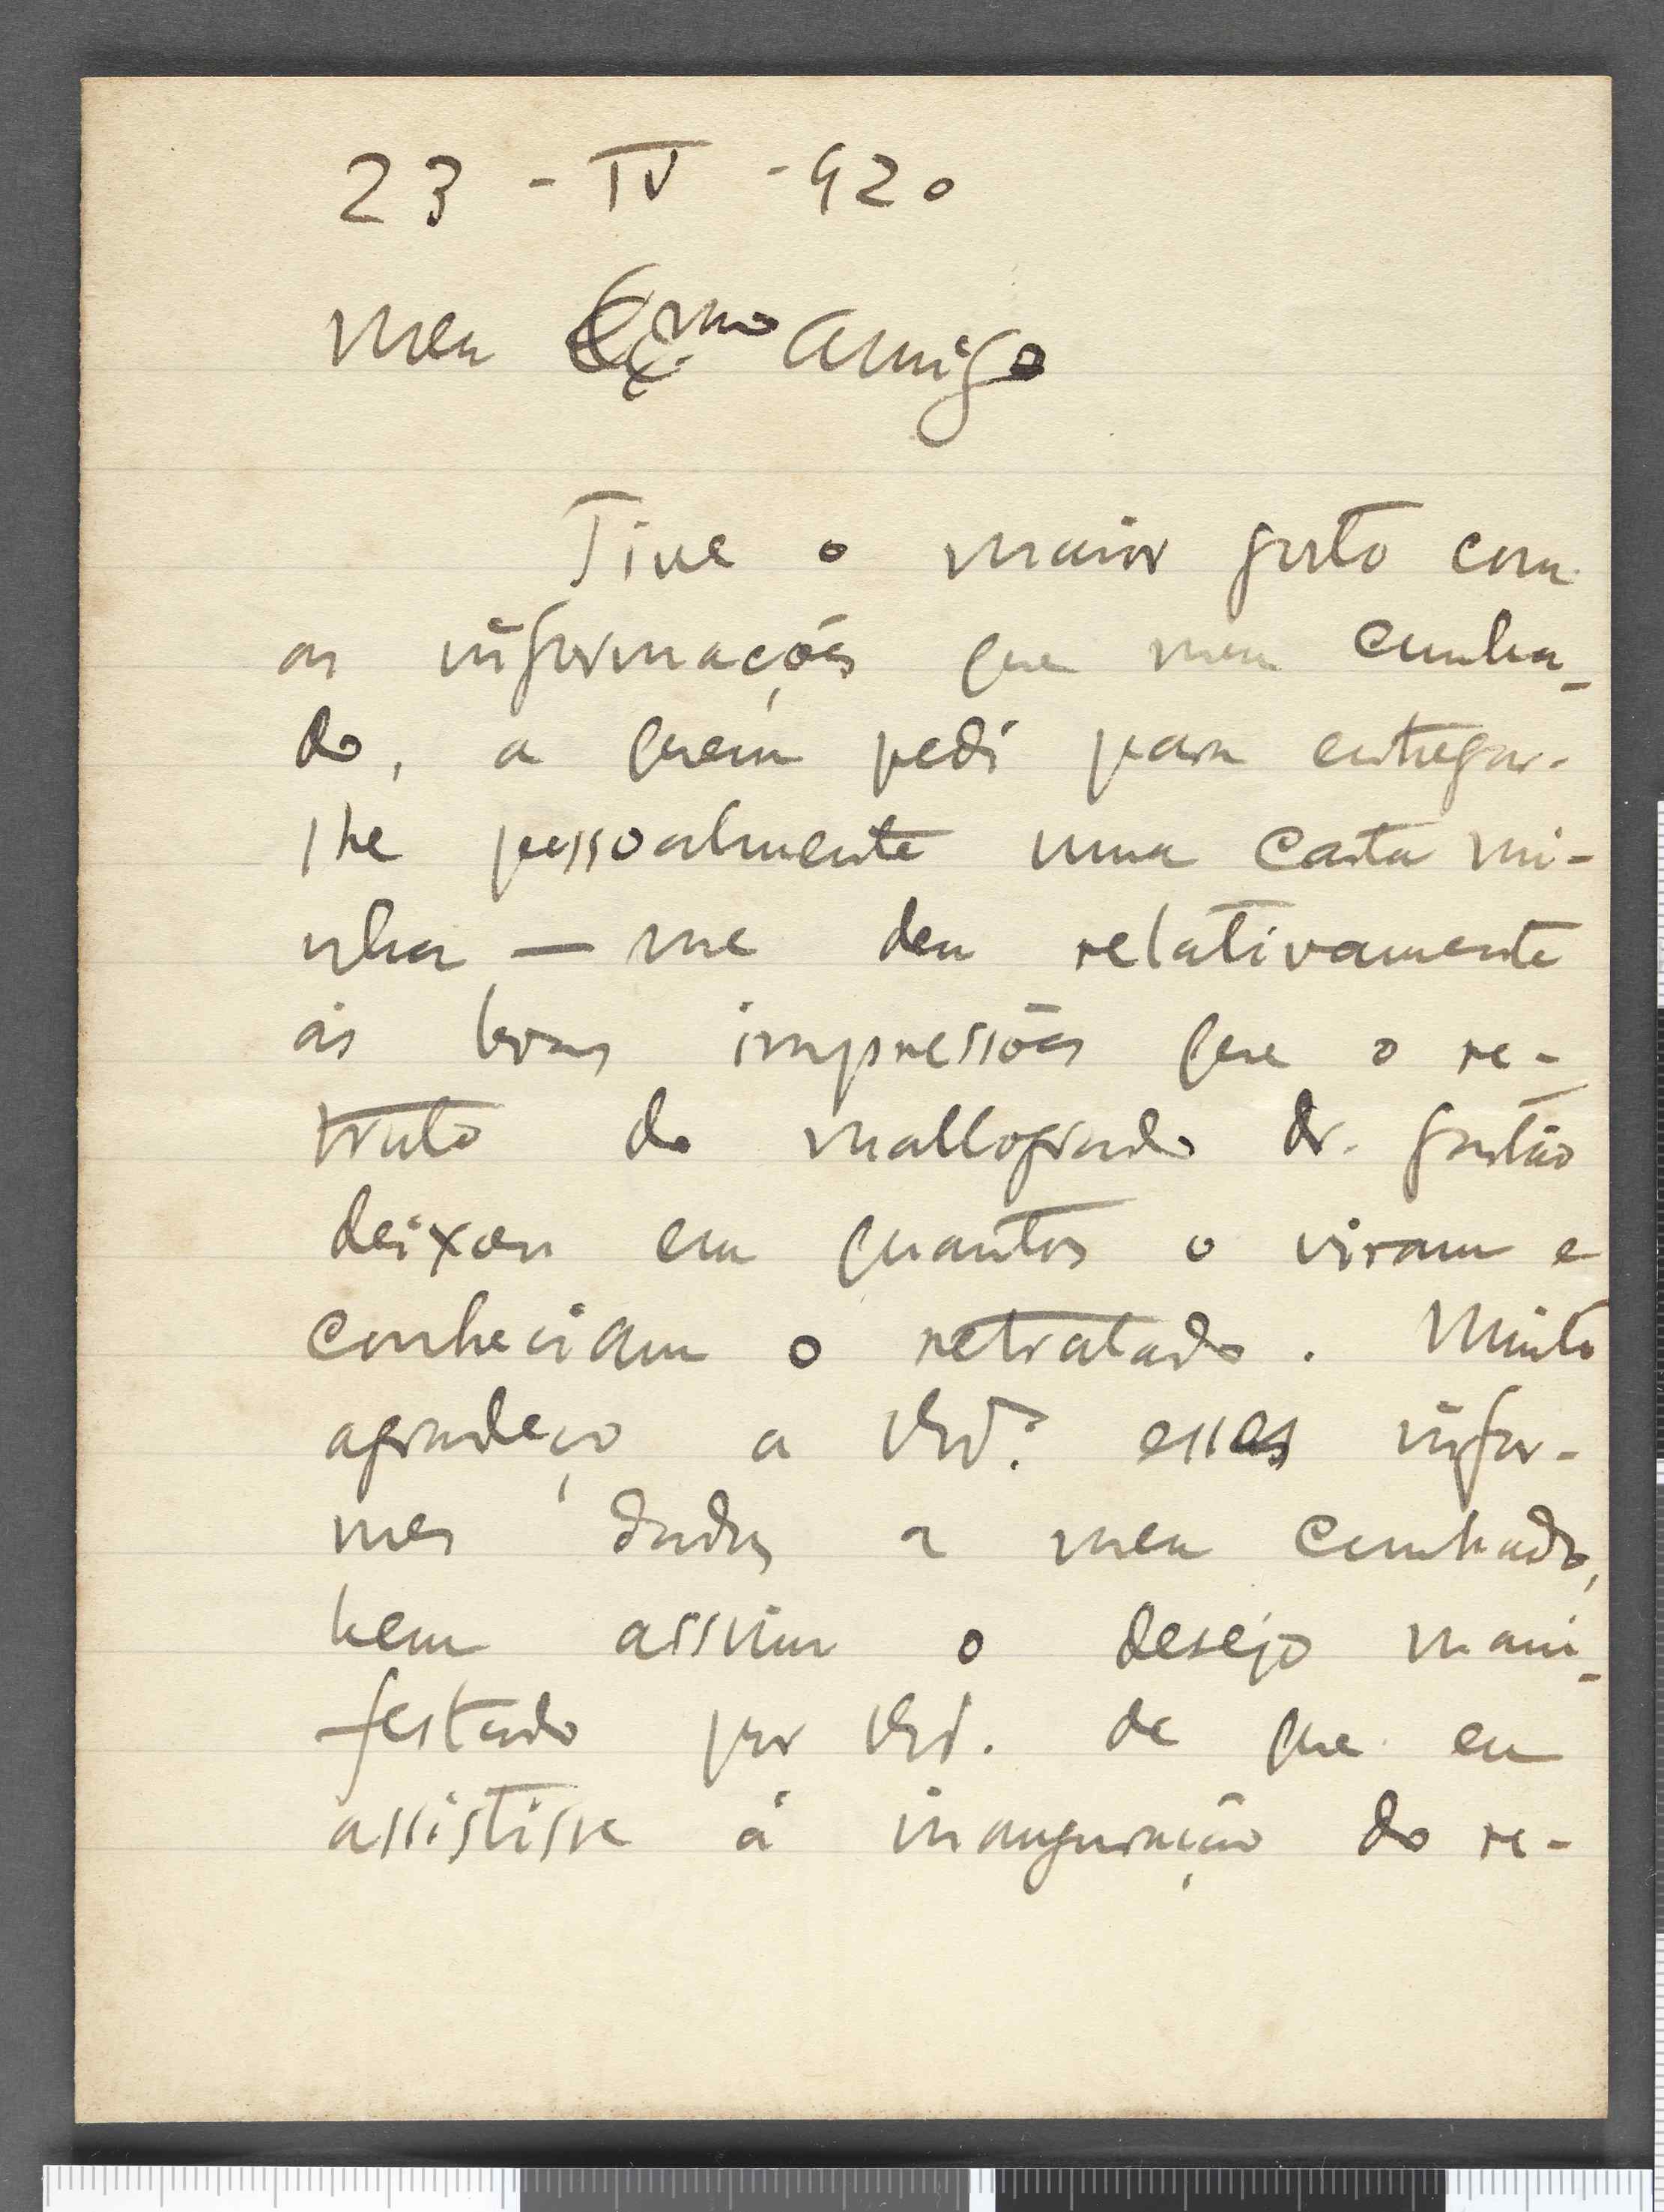 23 - IV - 920
Meu Exmo Amigo
Tive o maior gosto com
as informações que meu cunha-
do, a quem pedi para entregar-
lhe pessoalmente uma carta mi-
nha — me deu relativamente
ás boas impressões que o re-
trato do mallogrado dr. Gastão
deixou em quantos o viram e
conheciam o retratado. Muito
agradeço a esses infor-
mes dados a meu cunhado,
bem assim o desejo mani-
festado por de que eu
assistisse á inauguração do re-